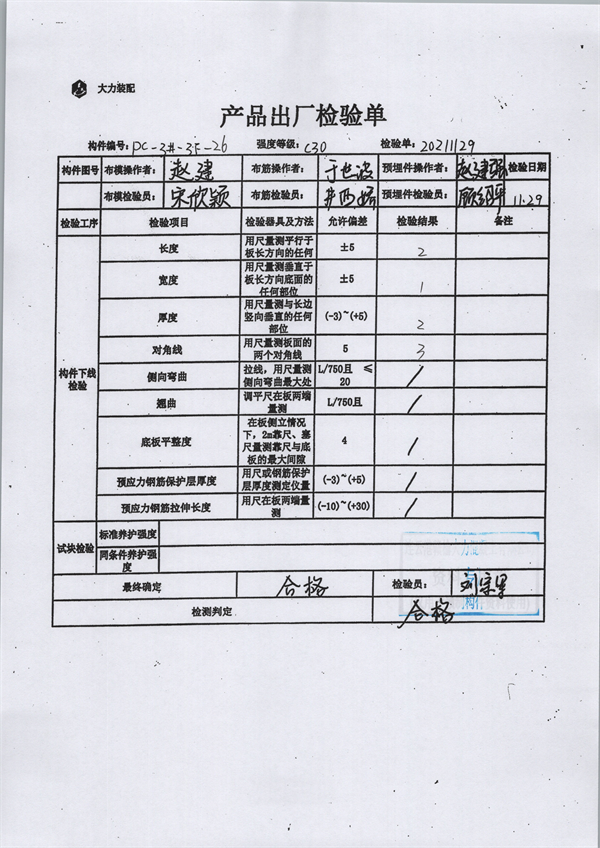 大力装配
产品出厂检验单
构件编号: PC-3#-3F-26 强度等级: C30 检验单: 20211129
构件图号 布模操作者: 赵建 布筋操作者: 于世波 预埋件操作者: 赵建强 检验日期
布模检验员: 宋欣颖 布筋检验员: 预埋件检验员: 11.29
检验工序 检验项目 检验器具及方法 允许偏差 检验结果 备注
构件下线检验
长度 用尺量测平行于板长方向的任何 ±5 2
宽度 用尺量测垂直于板长方向底面的任何部位 ±5 1
厚度 用尺量测与长边竖向垂直的任何部位 (-3)~(+5) 2
对角线 用尺量测板面的两个对角线 5 3
侧向弯曲 拉线，用尺量测侧向弯曲最大处 L/750且 ≤20 /
翘曲 调平尺在板两端量测 L/750且 /
底板平整度 在板侧立情况下，2m靠尺、塞尺量测靠尺与底板的最大间隙 4 /
预应力钢筋保护层厚度 用尺或钢筋保护层厚度测定仪量 (-3)~(+5) /
预应力钢筋拉伸长度 用尺在板两端量测 (-10)~(+30) /
试块检验 标准养护强度
同条件养护强度
最终确定 合格 检验员:
检测判定 合格